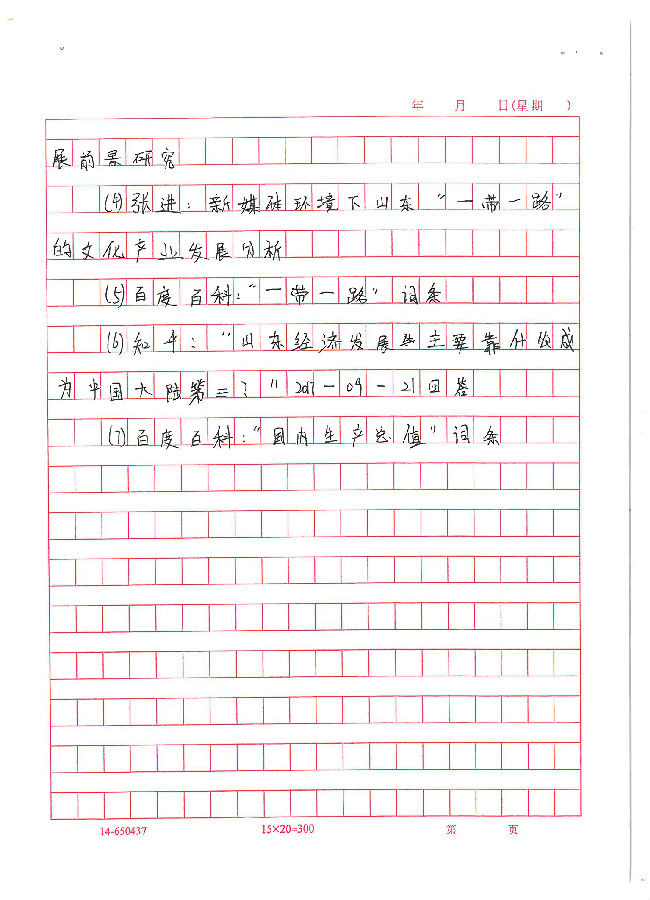 年 月 日(星期 )
展前景研究
(4)张进：新媒硅环境下山东“一带一路”
的文化产业发展分析
(5)百度百科：“一带一路”词条
(6)知乎：“山东经济发展主要靠什么成
为中国大陆第三？”2017-09-21回答
(7)百度百科：“国内生产总值”词条
14-650437 15×20=300 第 页